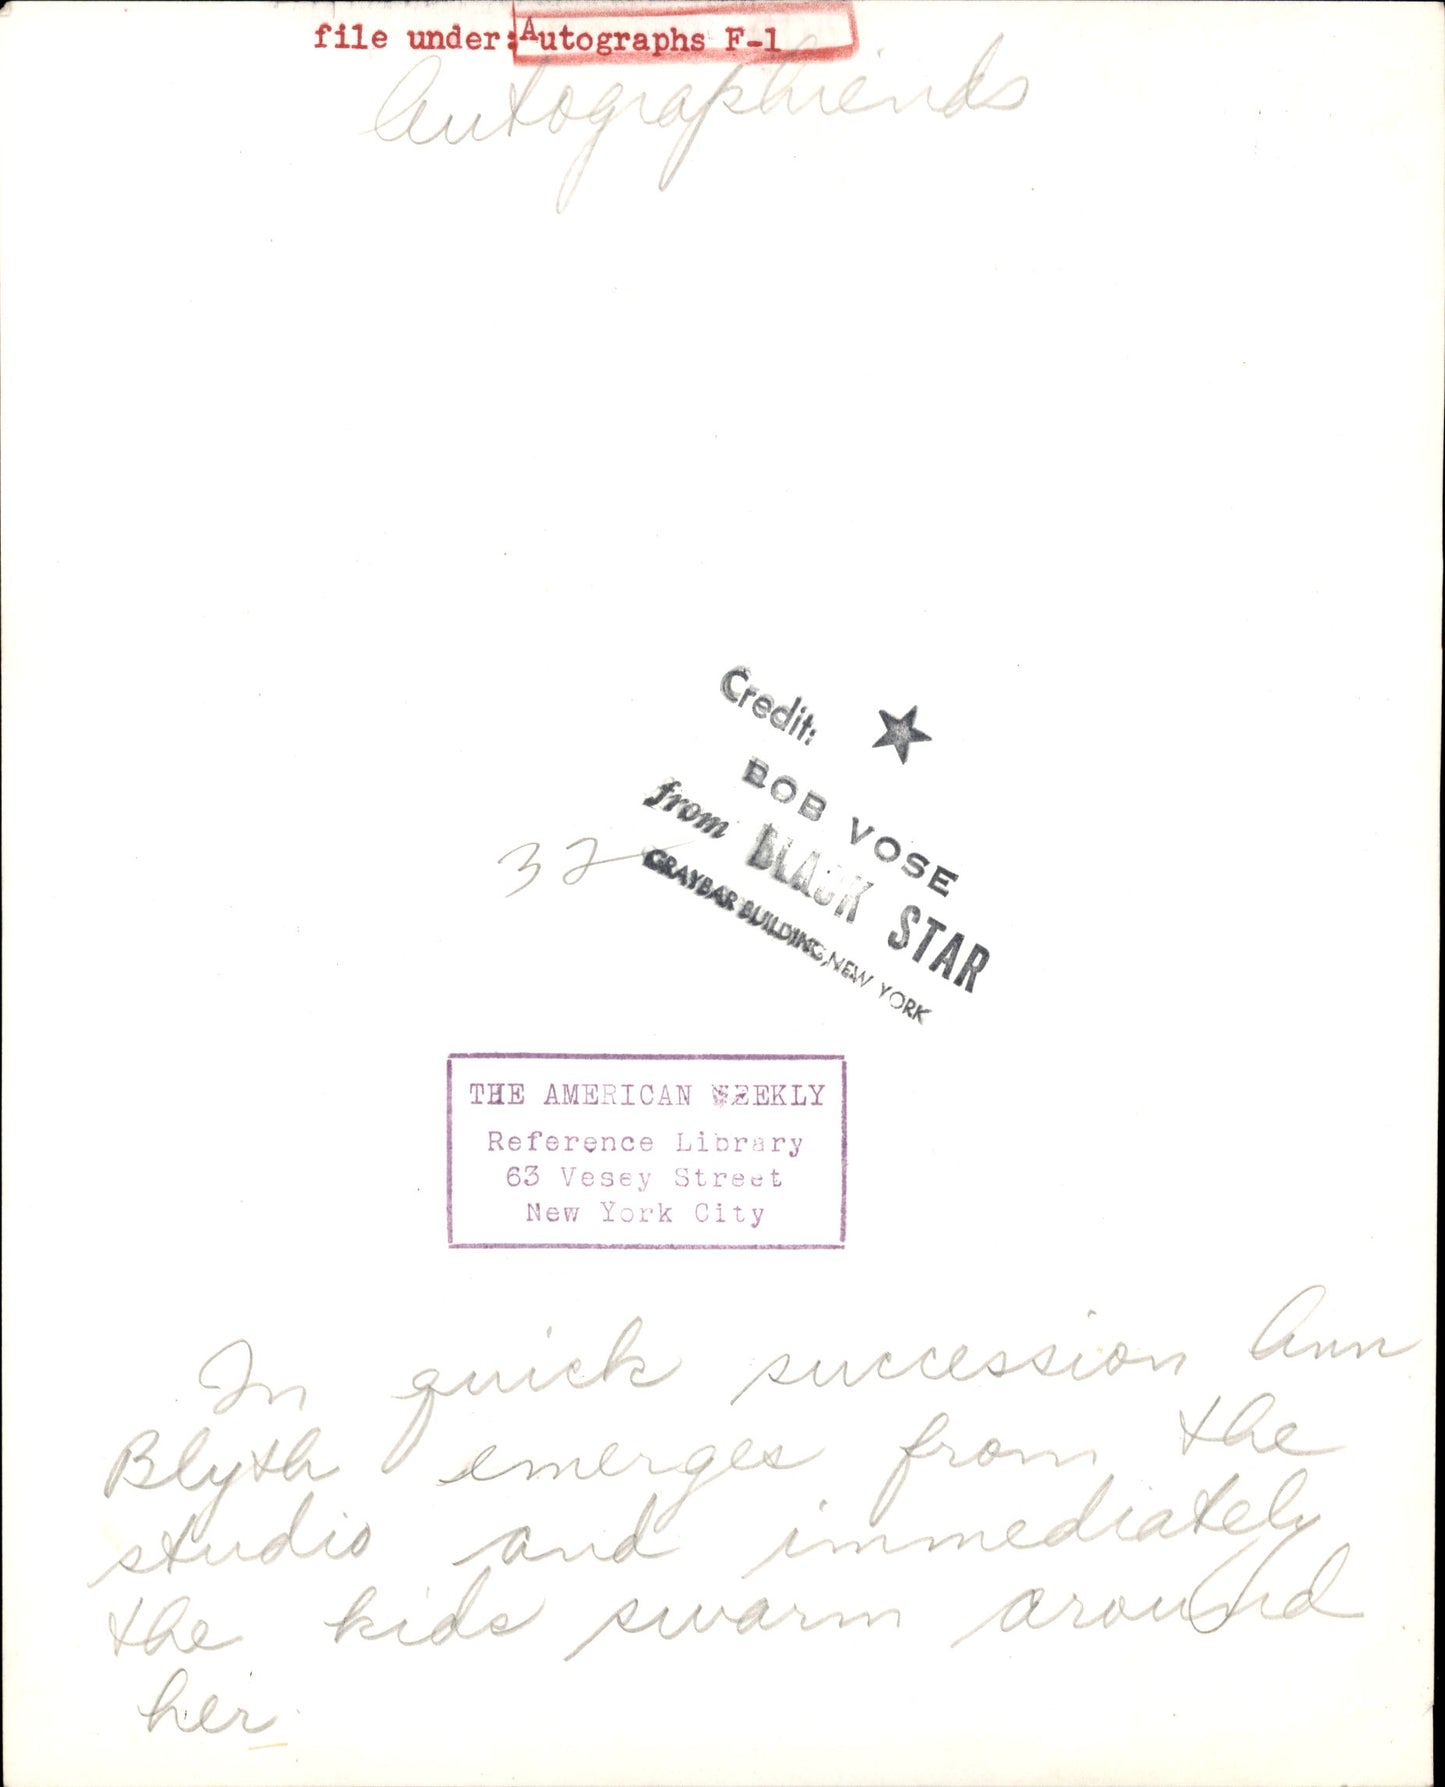 file under:Autographs F-1
Autographiends
Credit:
BOB VOSE
from BLACK STAR
GRAYBAR BUILDING, NEW YORK
32
THE AMERICAN WEEKLY
Reference Library
63 Vesey Street
New York City
In quick succession Ann
Blyth emerges from the
studio and immediately
the kids swarm around
her